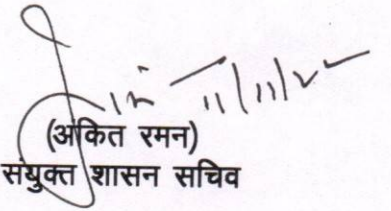 11/11/22
(अंकित रमन)
संयुक्त शासन सचिव